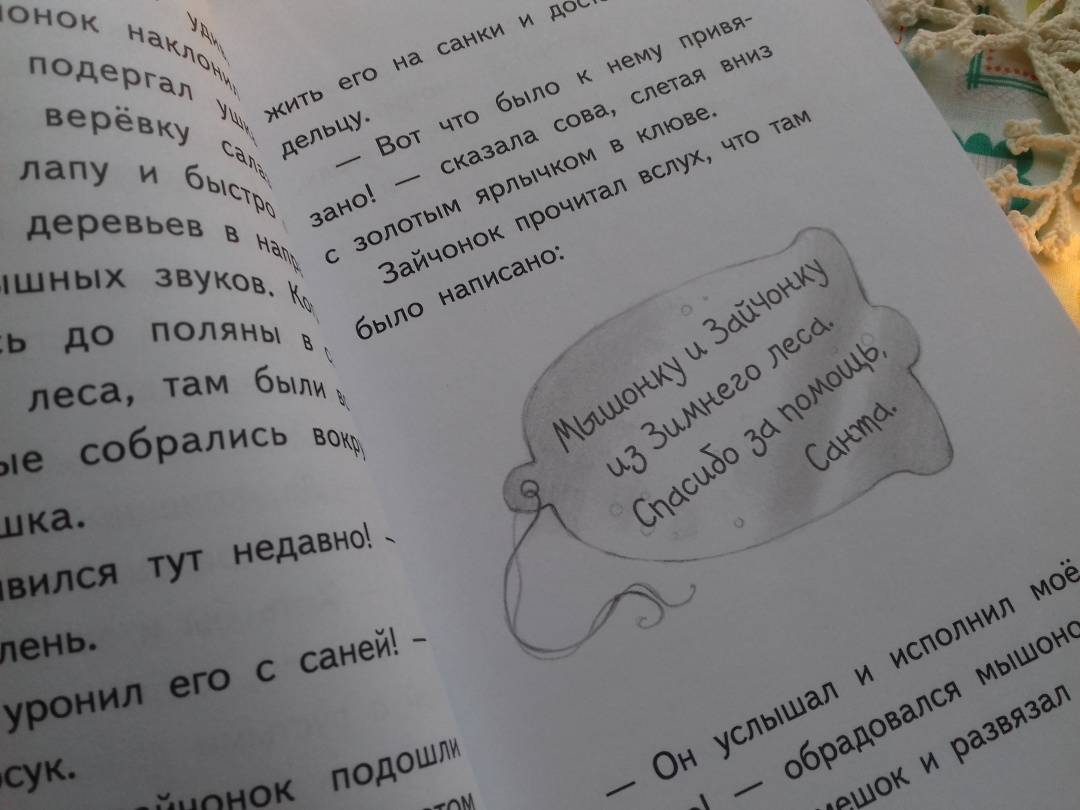 наклонил
подергал
верёвку
лапу и быстро
деревьев в
звуков.
до поляны в
леса, там были
собрались
тут недавно! –
уронил его с саней! –
подошли
жить его на санки и
дельцу.
— Вот что было к нему привя-
зано! — сказала сова, слетая вниз
с золотым ярлычком в клюве.
Зайчонок прочитал вслух, что там
было написано:
Мышонку и Зайчонку
из Зимнего леса.
Спасибо за помощь,
Санта.
— Он услышал и исполнил моё
— обрадовался
и развязал